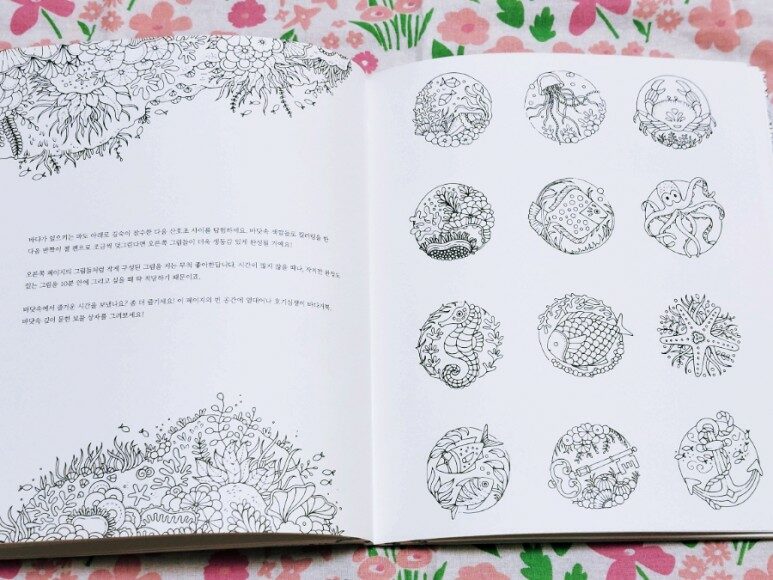 바다가 일으키는 파도 아래로 깊숙이 잠수한 다음 산호초 사이를 탐험하세요. 바닷속 색깔들로 컬러링을 한
다음 반짝이 젤 펜으로 조금씩 덧그린다면 오른쪽 그림들이 더욱 생동감 있게 완성될 거예요!
오른쪽 페이지의 그림들처럼 작게 구성된 그림을 저는 무척 좋아한답니다. 시간이 많지 않을 때나, 작지만 완성도
있는 그림을 10분 안에 그리고 싶을 때 딱 적당하기 때문이죠.
바닷속에서 즐거운 시간을 보냈나요? 좀 더 즐기세요! 이 페이지의 빈 공간에 열대어나 호기심쟁이 바다거북,
바닷속 깊이 묻힌 보물 상자를 그려보세요!